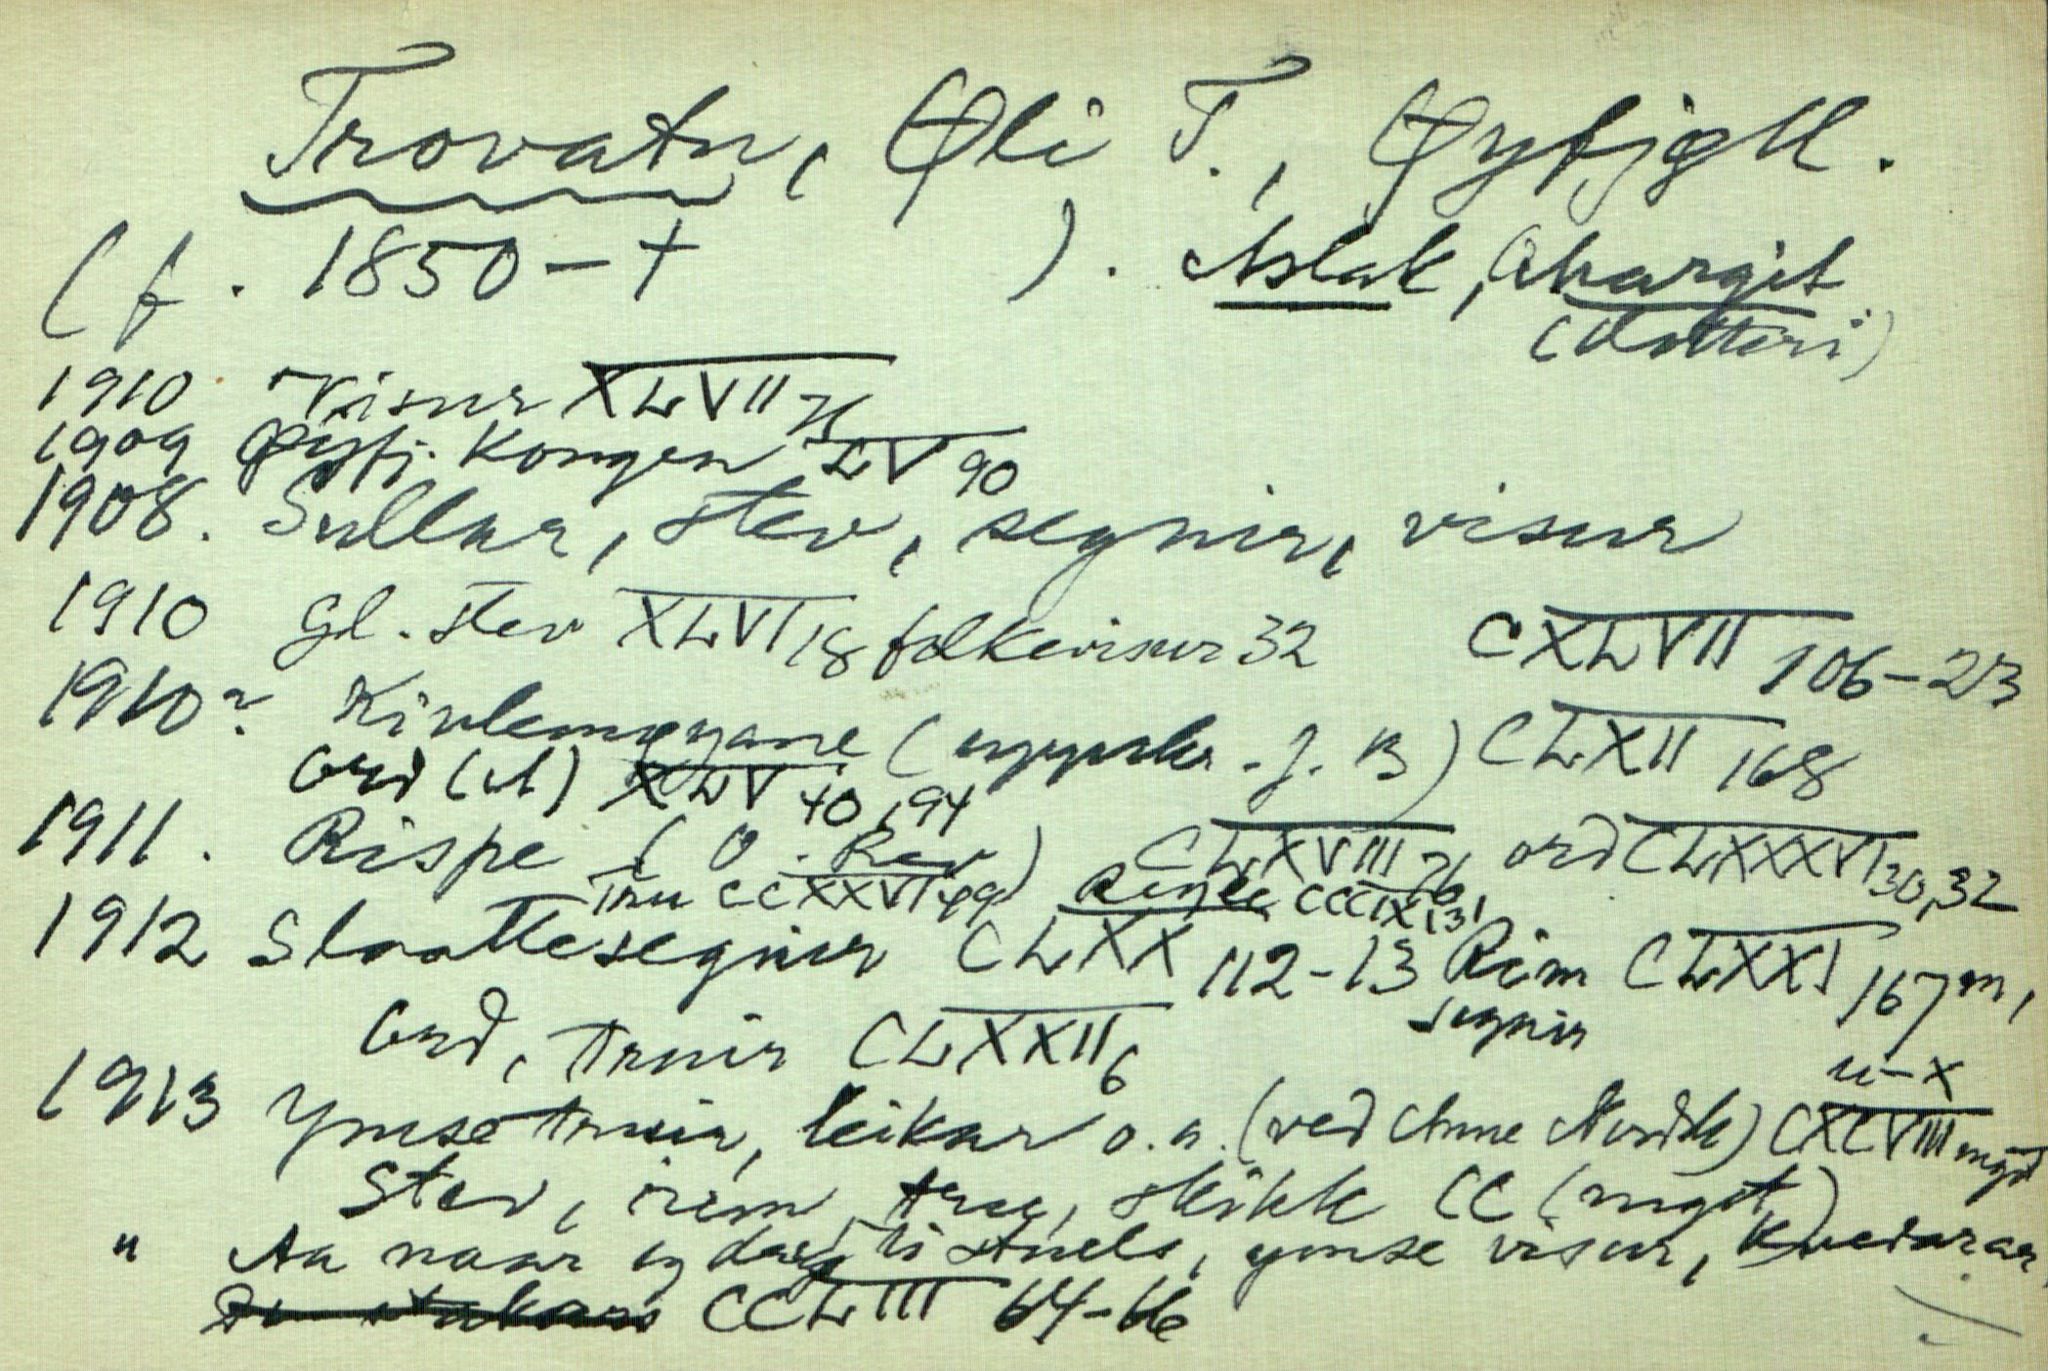 Trovatn, Øli T., Øyfjell.
(f. 1850 - † ). Aslak, Margit
(dotteri)
1910 Visur XLVII 76
1909 Øyfj. Kongen LV 90
1908. Sullar, stev, segnir, visur
1910 gl. stev XLVI 18 folkevisur 32 CXLVII 106-23
1910? Kivlemøyane (uppskr. f. B) CLXII 168
Ord (st) XLV 40, 94
1911. Rispe (O. Rev) CLXVIII 76 ord CLXXXVI 30,32
Tru CCXXVI 99 CCCIX 131
1912 Slaattesegnir CLXX 112-13 Rim CLXXI 167 m,
segnir
Ord, truir CLXXII 6
u-x
1913 Ymse truir, leikar o.a. (ved Anne) CXCVIII myst
Stev, rim, tru, skikk CC (myst)
" Aa naar eg ymse visur, kvedarar,
CCLIII 64-66